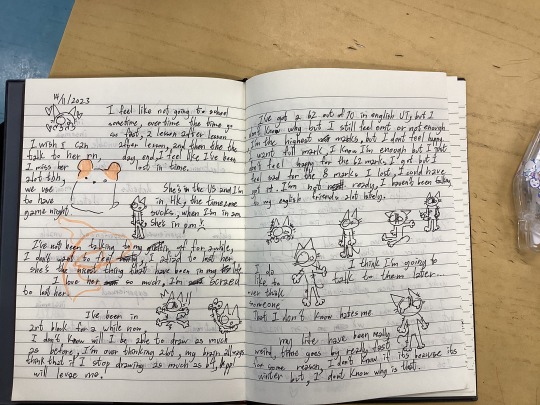 14/11/2023
I feel like not going to school
sometime, everytime the time go
so fast, 2 lesson after lesson
I wish I can after lesson, and then the the
talk to her rn, day end, I feel like I've been
I miss her lost in time.
alot tbh,
we use She's in the US and I'm
to have in, HK, the timezone
game night. sucks, when I'm in am
She's in p.m!
I've not been talking to my for awhile,
I don't want to I afraid to lost her
she's the nicest thing that have been in my life
I love her so much, I'm scared
to lost her.
I've been in
art block for a while now
I don't know will I be able to draw as much
as before, I'm over thinking alot, my brain always
think that if I stop drawing as much as b4, ppl
will leave me.
I've got a 62 out of 70 in english UT, but I
don't know why but I still feel or not enough
I'm the highest marks, but I don't feel happy
I want full mark I know I'm enough but I just
don't feel happy for the 62 marks I got but I
feel sad for the 8 marks I lost, I could have
got it. I'm not really, I haven't been talking
to my english friends alot lately.
I do I think I'm going to
like to talk to them later...
over think
someone
That I don't know hates me.
my life have been really
weird, time goes by really fast
for some reason, I don't know if it's because its
winter but, I don't know why is that.